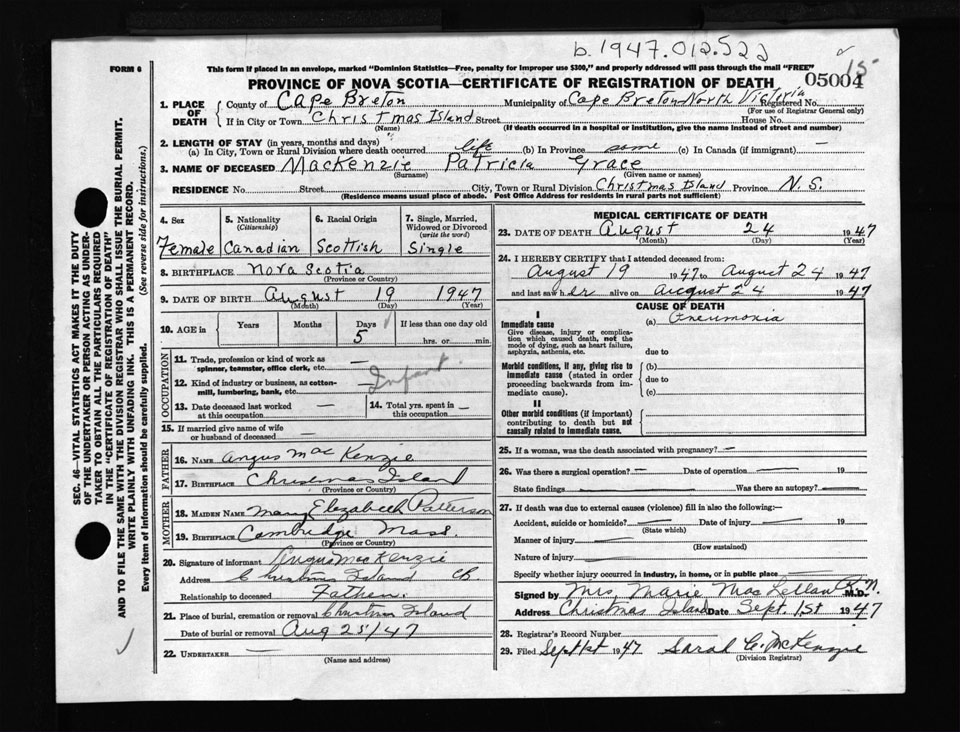 b.1947.012.522
15
FORM 6
This form if placed in an envelope, marked "Dominion Statistics—Free, penalty for improper use $300," and properly addressed will pass through the mail "FREE"
PROVINCE OF NOVA SCOTIA—CERTIFICATE OF REGISTRATION OF DEATH 05004
1. PLACE OF DEATH
County of Cape Breton Municipality of Cape Breton North Victoria Registered No.
(For use of Registrar General only)
If in City or Town Christmas Island Street House No.
(Name) (If death occurred in a hospital or institution, give the name instead of street and number)
2. LENGTH OF STAY (in years, months and days)
(a) In City, Town or Rural Division where death occurred life (b) In Province same (c) In Canada (if immigrant) —
3. NAME OF DECEASED MacKenzie Patricia Grace
(Surname) (Given name or names)
RESIDENCE No. Street City, Town or Rural Division Christmas Island Province N.S.
(Residence means usual place of abode. Post Office Address for residents in rural parts not sufficient)
4. Sex 5. Nationality (Citizenship) 6. Racial Origin 7. Single, Married, Widowed or Divorced (write the word)
Female Canadian Scottish Single
8. BIRTHPLACE Nova Scotia
(Province or Country)
9. DATE OF BIRTH August 19 1947
(Month) (Day) (Year)
10. AGE in Years Months Days 5 If less than one day old
hrs. or min.
OCCUPATION
11. Trade, profession or kind of work as spinner, teamster, office clerk, etc. —
12. Kind of industry or business, as cotton-mill, lumbering, bank, etc. — Infant
13. Date deceased last worked at this occupation — 14. Total yrs. spent in this occupation —
15. If married give name of wife or husband of deceased —
FATHER
16. NAME Angus MacKenzie
17. BIRTHPLACE Christmas Island
(Province or Country)
MOTHER
18. MAIDEN NAME Mary Elezabeth Patterson
19. BIRTHPLACE Cambridge Mass.
(Province or Country)
20. Signature of informant Angus MacKenzie
Address Christmas Island CB
Relationship to deceased Father.
21. Place of burial, cremation or removal Christmas Island
Date of burial or removal Aug 25/47
22. UNDERTAKER —
(Name and address)
MEDICAL CERTIFICATE OF DEATH
23. DATE OF DEATH August 24 1947
(Month) (Day) (Year)
24. I HEREBY CERTIFY that I attended deceased from:
August 19 1947 to August 24 1947
and last saw her alive on August 24 1947
CAUSE OF DEATH
I
Immediate cause (a) Pneumonia
Give disease, injury or complication which caused death, not the mode of dying, such as heart failure, asphyxia, asthenia, etc. due to
Morbid conditions, if any, giving rise to immediate cause (stated in order proceeding backwards from immediate cause). (b)
due to
(c)
II
Other morbid conditions (if important) contributing to death but not causally related to immediate cause.
25. If a woman, was the death associated with pregnancy? —
26. Was there a surgical operation? — Date of operation — 19
State findings — Was there an autopsy? —
27. If death was due to external causes (violence) fill in also the following:—
Accident, suicide or homicide? — Date of injury — 19
(State which)
Manner of injury —
(How sustained)
Nature of injury —
Specify whether injury occurred in industry, in home, or in public place —
Signed by Mrs. Marie MacLellan R.N. M.D.
Address Christmas Island Date Sept. 1st 1947
28. Registrar's Record Number
29. Filed Sept 1st 1947 Sarah C. McKenzie
(Division Registrar)
SEC. 46—VITAL STATISTICS ACT MAKES IT THE DUTY
OF THE UNDERTAKER OR PERSON ACTING AS UNDER-
TAKER TO OBTAIN ALL THE PARTICULARS REQUIRED
IN THE "CERTIFICATE OF REGISTRATION OF DEATH"
AND TO FILE THE SAME WITH THE DIVISION REGISTRAR WHO SHALL ISSUE THE BURIAL PERMIT.
WRITE PLAINLY WITH UNFADING INK. THIS IS A PERMANENT RECORD.
Every item of Information should be carefully supplied. (See reverse side for instructions.)